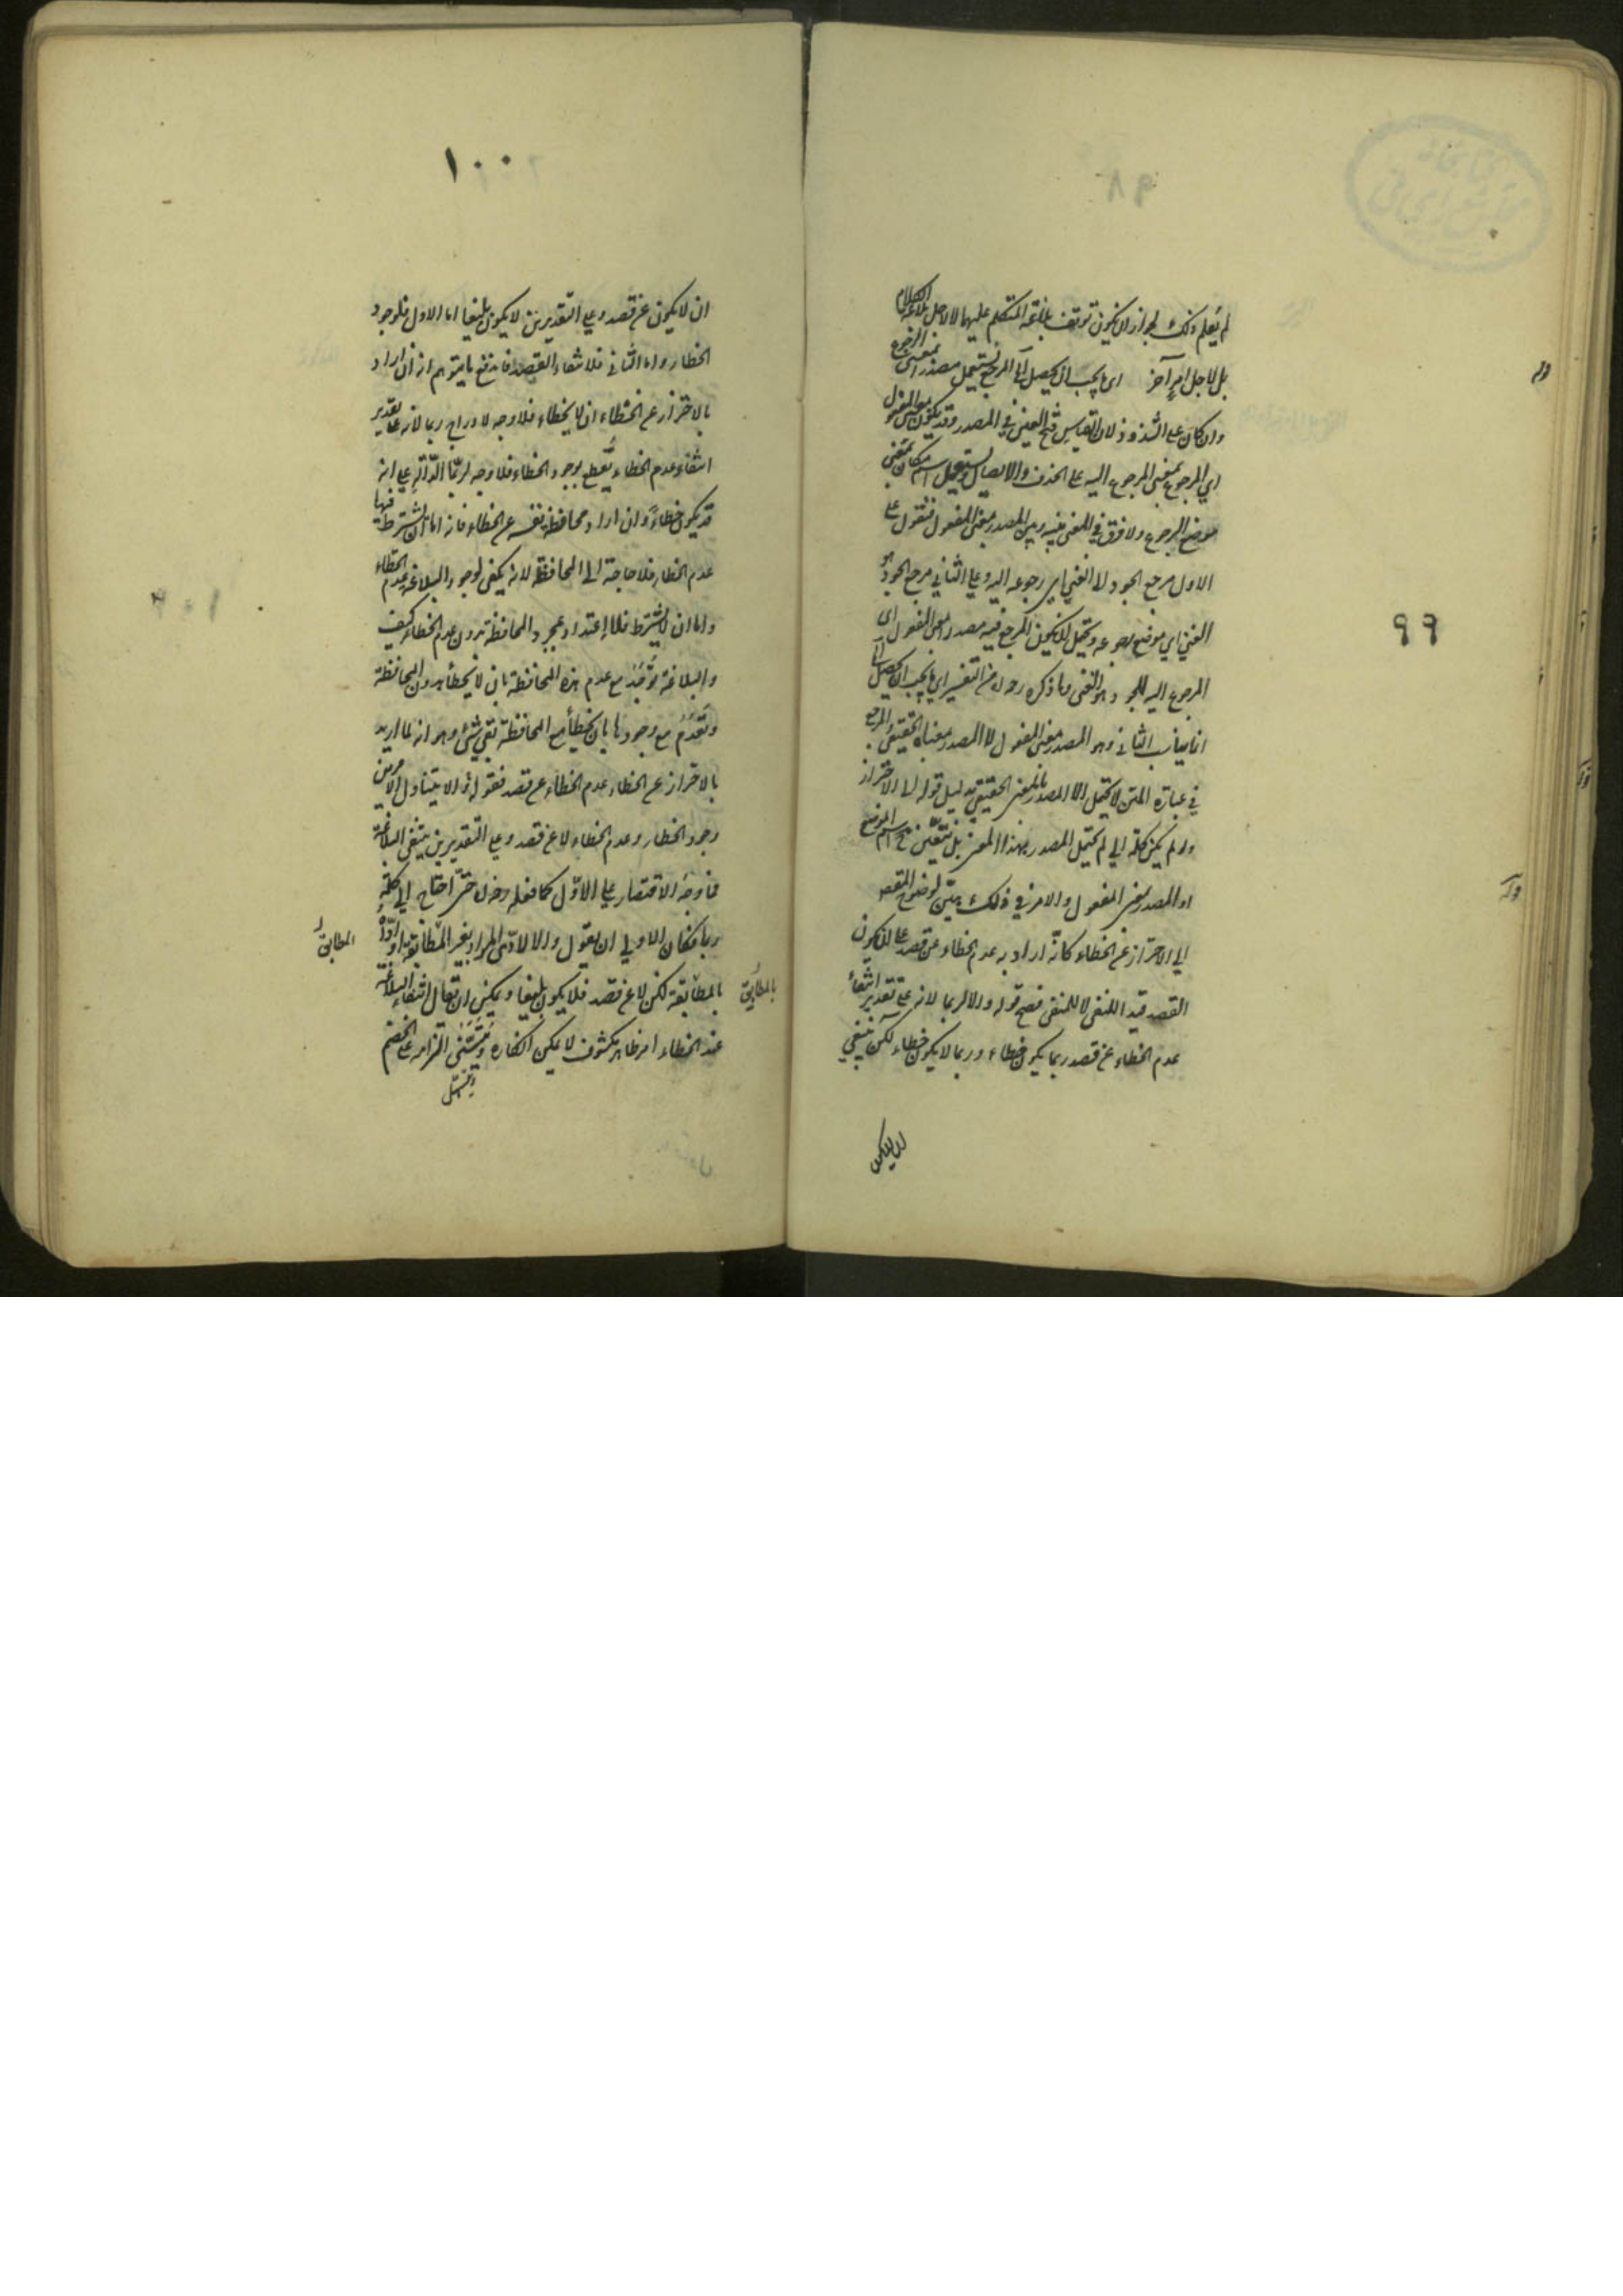 ٩٩
لم يعلم ذلك لجواز ان يكون توقف بلاغة المتكلم عليهما لا لاجل بلاغة الكلام
بل لاجل امر آخر اى ما يجب ان يحصل المرجع يستعمل مصدرا بمعنى الرجوع
وان كان على الشذوذ لان القياس فتح العين في المصدر وقد يكون بمعنى المفعول
اي المرجوع بمعنى المرجوع اليه على الحذف والايصال ويستعمل اسم مكان بمعنى
موضع الرجوع ولا فرق في المعنى بينه وبين المصدر بمعنى المفعول فنقول على
الاول مرجع الجود الغنى اي رجوعه اليه وعلى الثاني مرجع الجود هو
الغنى اي موضع رجوعه ويحتمل ان يكون المرجع فيه مصدرا بمعنى المفعول اى
المرجوع اليه للجود هو الغنى وما ذكره من التفسير اي ما يجب ان يحصل
انما يناسب الثاني وهو المصدر بمعنى المفعول لا المصدر بمعناه الحقيقي والمرجع
في عبارة المتن لا يحتمل الا المصدر بالمعنى الحقيقي بدليل قوله الى الاحتراز
ولو لم يكن كلمة الى لم يحتمل المصدر بهذا المعنى بل تعين اسم الموضع
او المصدر بمعنى المفعول والامر في ذلك بين لوضوح المقصود
الي الاحتراز عن الخطاء كانّه اراد به عدم الخطاء عن قصد على ان يكون
القصد قيد النفى لا للمنفى فصح قوله والا لربما لانه على تقدير انتفاء
عدم الخطاء عن قصد ربما يكون خطاء وربما لا يكون خطاء لكن ينبغي
ان لا يكون
١٠٠
ان لا يكون عن قصد وعلى التقديرين لا يكون بليغا اما الاول فلوجود
الخطاء واما الثاني فلانتفاء القصد فاندفع ما يتوهم انه ان اراد
بالاحتراز عن الخطاء ان لا يخطاء فلا وجه لايراد ربما لانه على تقدير
انتفاء عدم الخطاء يقطع بوجود الخطاء فلا وجه لربّما الدّالّة على انه
قد يكون خطاءً وان اراد محافظة نفسه عن الخطاء فانه اما ان يشترط فيها
عدم الخطاء فلا حاجة الى المحافظة لانه يكفى لوجود البلاغة عدم الخطاء
واما ان لا يشترط فلا اعتداد بمجرد المحافظة بدون عدم الخطاء كيف
والبلاغة توجد مع عدم هذه المحافظة بان لا يخطأ بدون المحافظة
وتعدم مع وجودها بان يخطأ مع المحافظة بقى شئ وهو انه لما اريد
بالاحتراز عن الخطاء عدم الخطاء عن قصد فقوله والا يتناول الامرين
وجود الخطاء وعدم الخطاء لا عن قصد وعلى التقديرين ينتفي البلاغة
فما وجه الاقتصار على الاول كما فعله حتى احتاج الى كلمة
ربما فكان الاولى ان يقول والا لادّى المراد بغير المطابقة او ادّاه
بالمطابقة لكن لا عن قصد فلا يكون بليغا ويمكن ان يقال انتفاء البلاغة
عند الخطاء امر ظاهر مكشوف لا يمكن انكاره الخصم
المطابق
بالمطابق